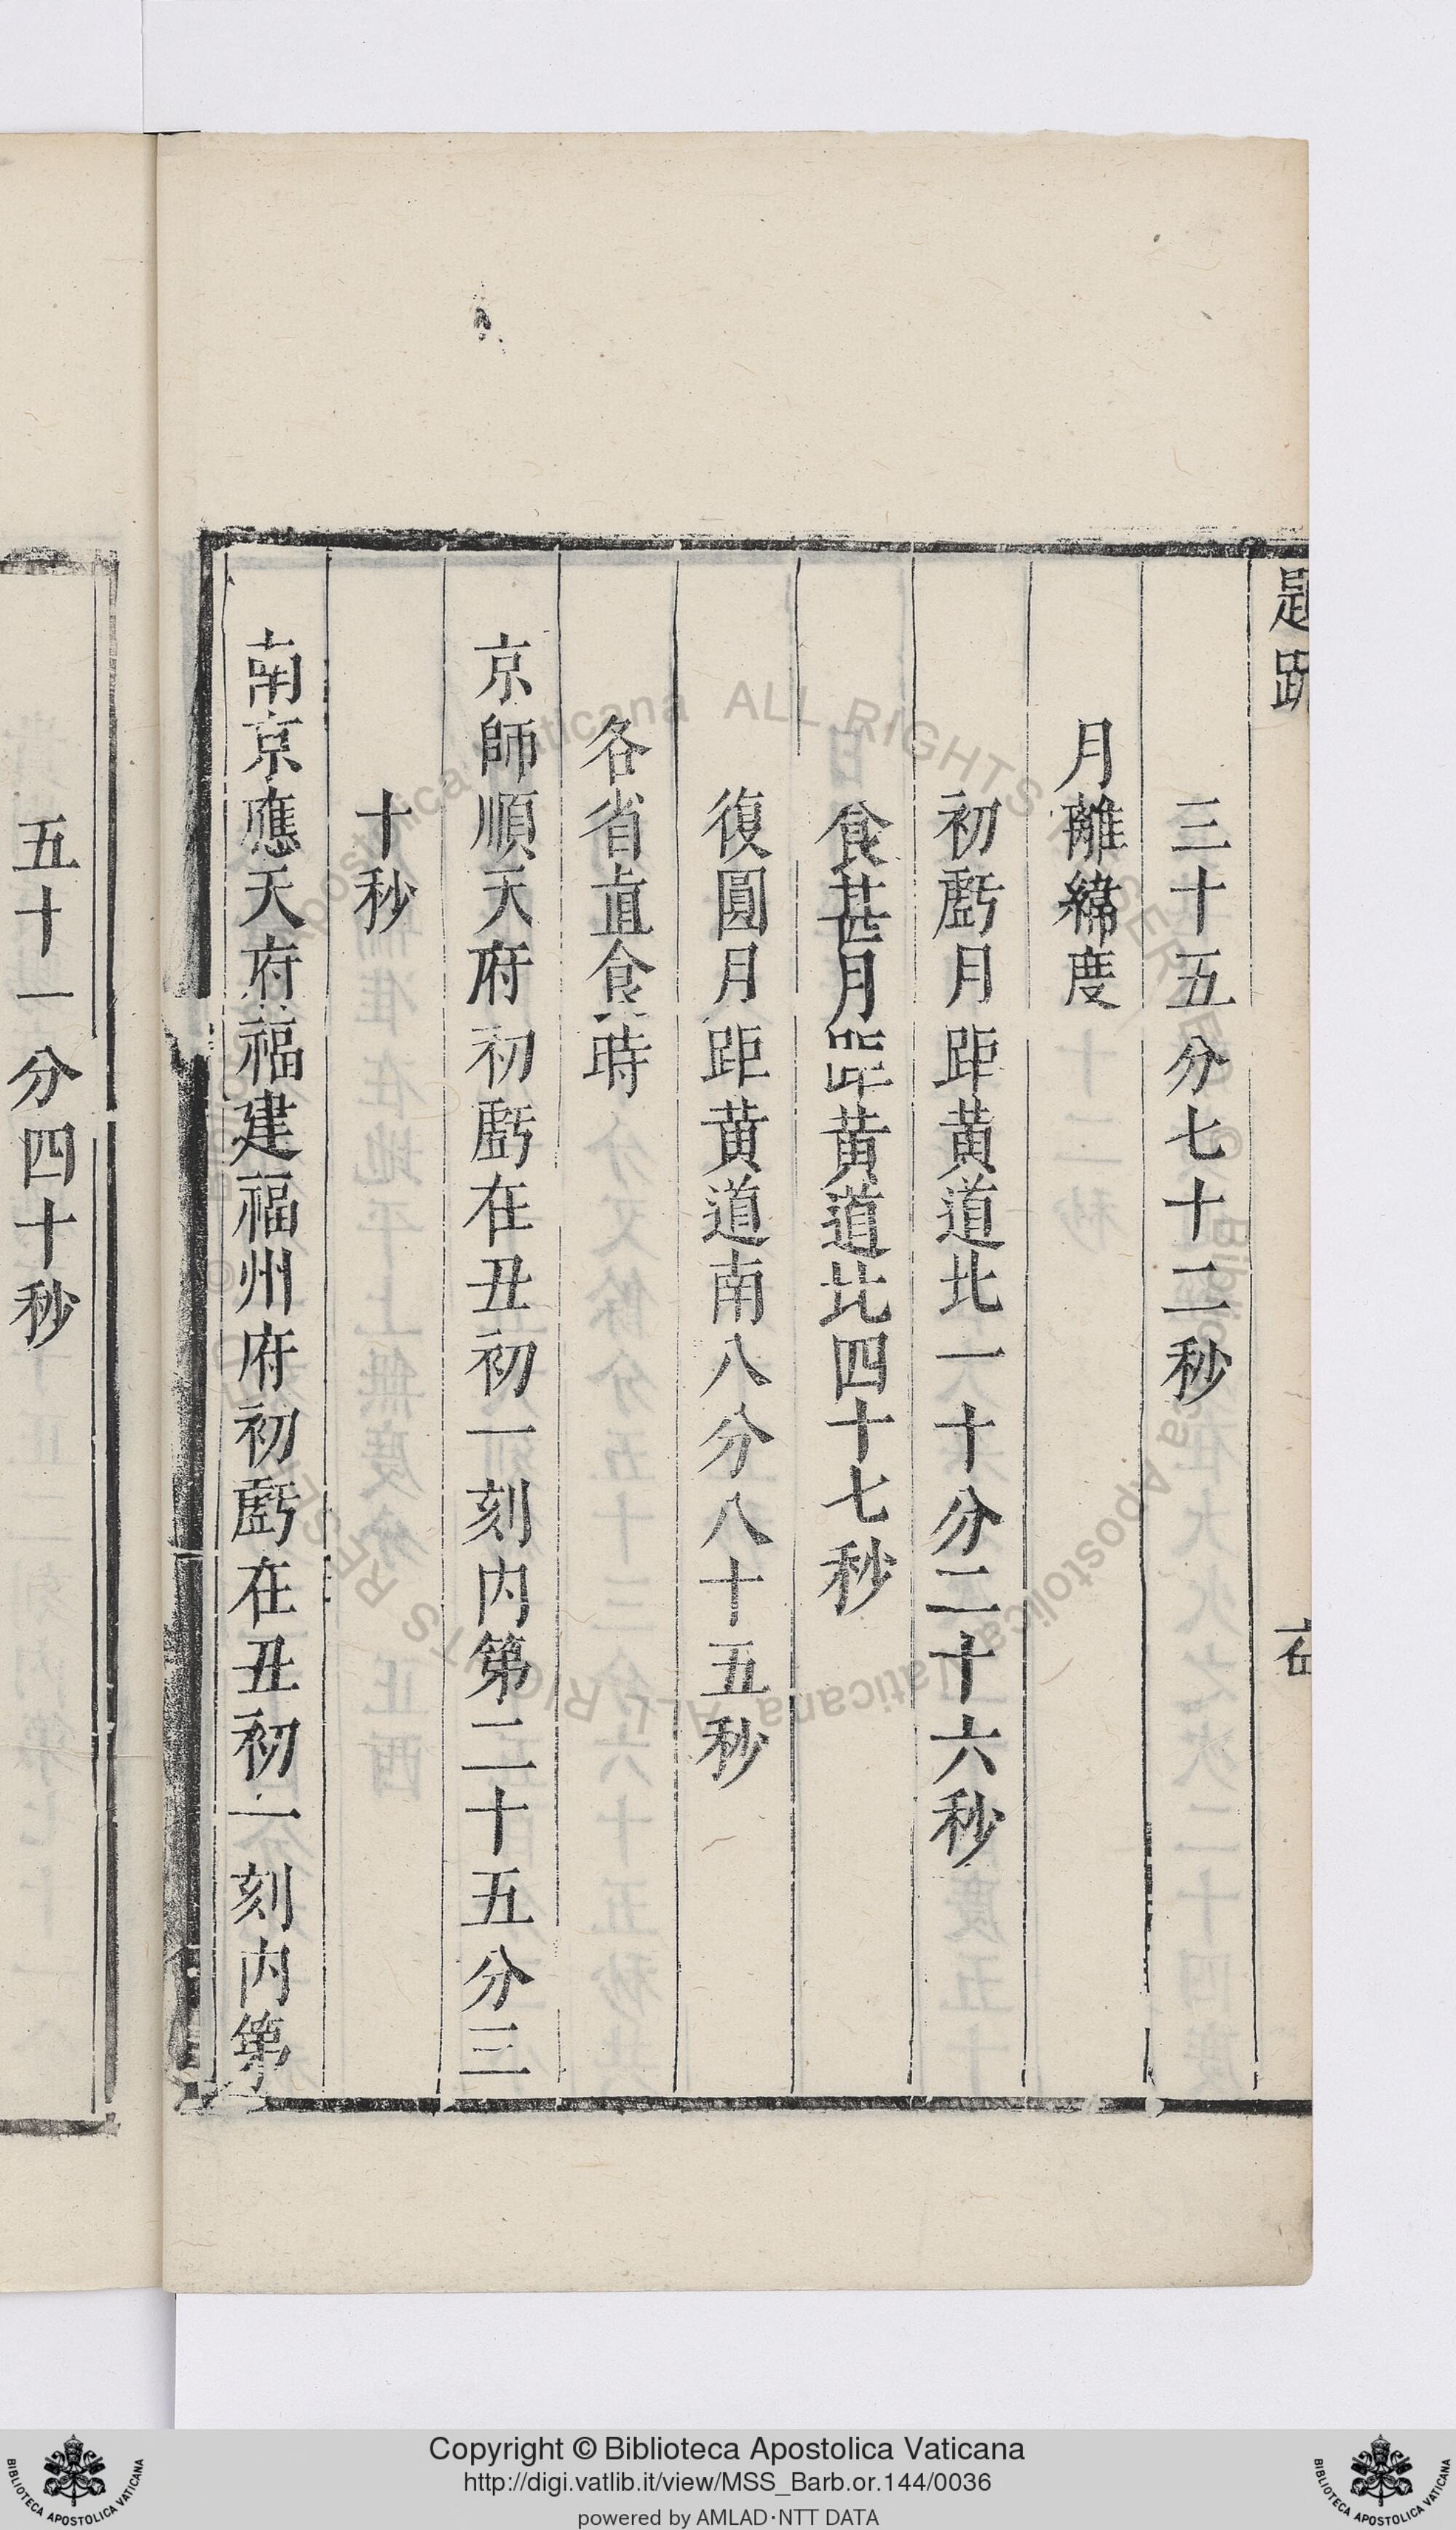 題䟽
三十五分七十二秒
月離緯度
初虧月距黃道北一十分二十六秒
食甚月距黃道北四十七秒
復圓月距黃道南八分八十五秒
各省直食時
京師順天府初虧在丑初一刻内第二十五分三
十秒
南京應天府福建福州府初虧在丑初一刻内第
五十一分四十秒
Copyright © Biblioteca Apostolica Vaticana
http://digi.vatlib.it/view/MSS_Barb.or.144/0036
powered by AMLAD·NTT DATA